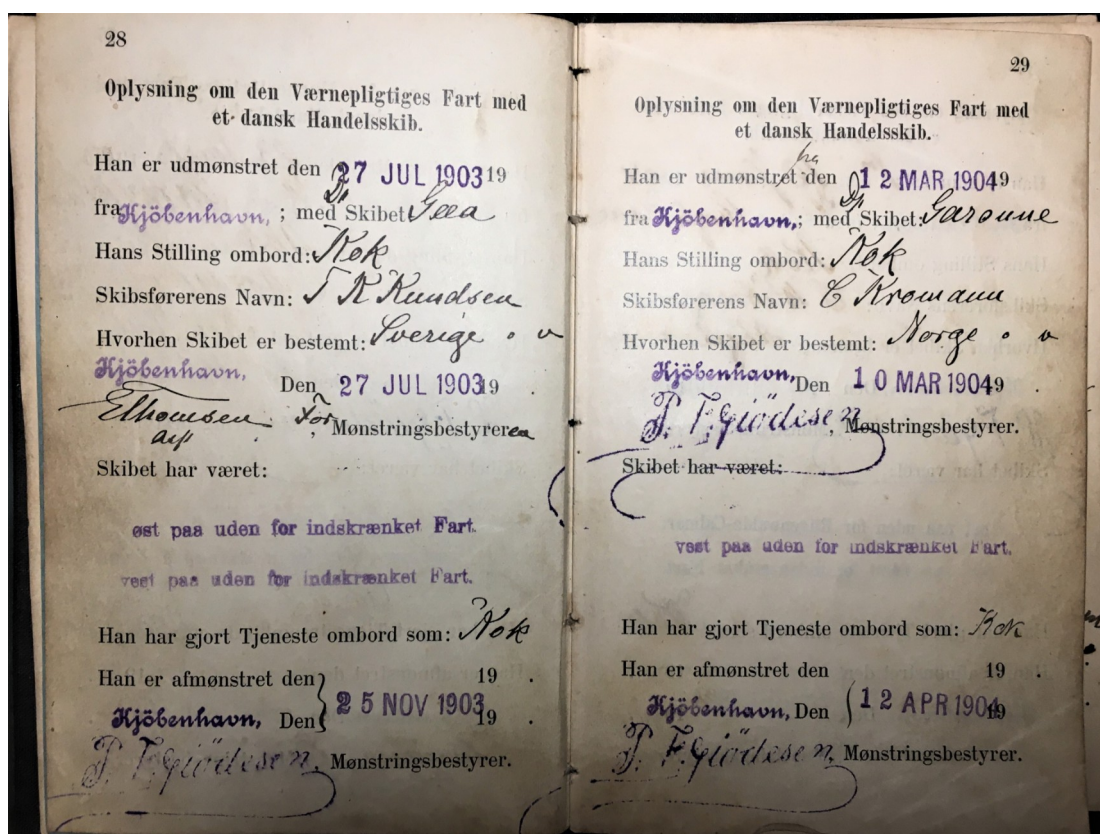 28
Oplysning om den Værnepligtiges Fart med
et dansk Handelsskib.
Han er udmønstret den 27 JUL 1903 19
fra Kjöbenhavn, ; med Skibet: Dp Gæa
Hans Stilling ombord: Kok
Skibsførerens Navn: T K Knudsen
Hvorhen Skibet er bestemt: Sverige o v
Kjöbenhavn, Den 27 JUL 1903 19 .
EThomsen For, Mønstringsbestyreren
Skibet har været:
øst paa uden for indskrænket Fart.
vest paa uden for indskrænket Fart.
Han har gjort Tjeneste ombord som: Kok
Han er afmønstret den 19 .
Kjöbenhavn, Den 25 NOV 1903 19 .
P. F. Giödesen, Mønstringsbestyrer.
29
Oplysning om den Værnepligtiges Fart med
et dansk Handelsskib.
Han er udmønstret fra den 12 MAR 1904 9
fra Kjöbenhavn, ; med Skibet: Dp Garonne
Hans Stilling ombord: Kok
Skibsførerens Navn: C Kromann
Hvorhen Skibet er bestemt: Norge o v
Kjöbenhavn, Den 10 MAR 1904 9 .
P. F. Giödesen, Mønstringsbestyrer.
Skibet har været:
vest paa uden for indskrænket Fart.
Han har gjort Tjeneste ombord som: Kok
Han er afmønstret den 19 .
Kjöbenhavn, Den 12 APR 1904 19
P. F. Giödesen, Mønstringsbestyrer.